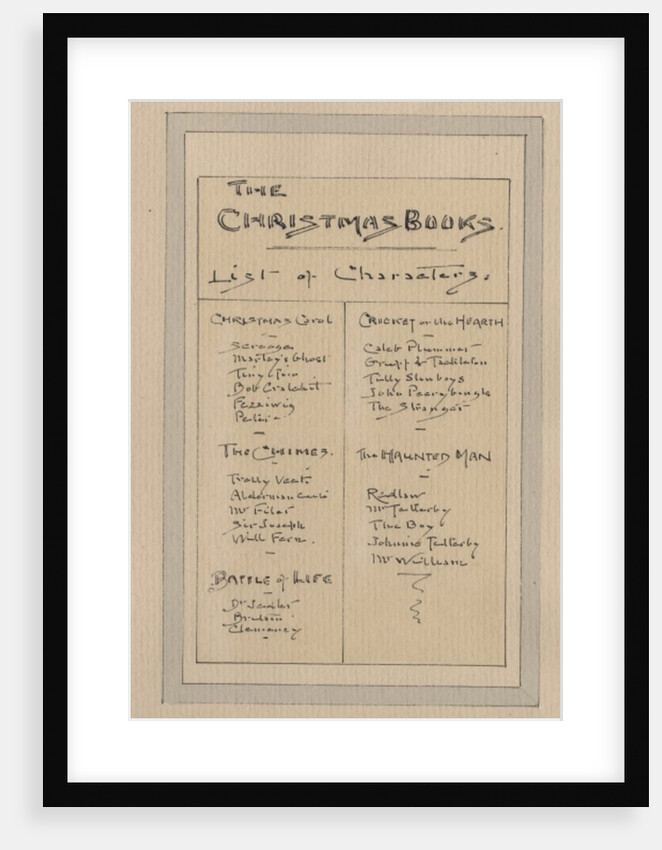 THE
CHRISTMAS BOOKS.
List of Characters.
CHRISTMAS Carol
Scrooge
Marley's Ghost
Tiny Tim
Bob Cratchit
Fezziwig
THE CHIMES.
Trotty Veck
Alderman Cute
Mr Filer
Sir Joseph
Will Fern.
BATTLE of LIFE
Dr Jeddler
Britain
Clemency
CRICKET on the HEARTH
Caleb Plummer
Gruff & Tackleton
Tilly Slowboys
John Peerybingle
The Stranger
The HAUNTED MAN
Redlaw
Mr Tetterby
The Boy
Johnnie Tetterby
Mr William